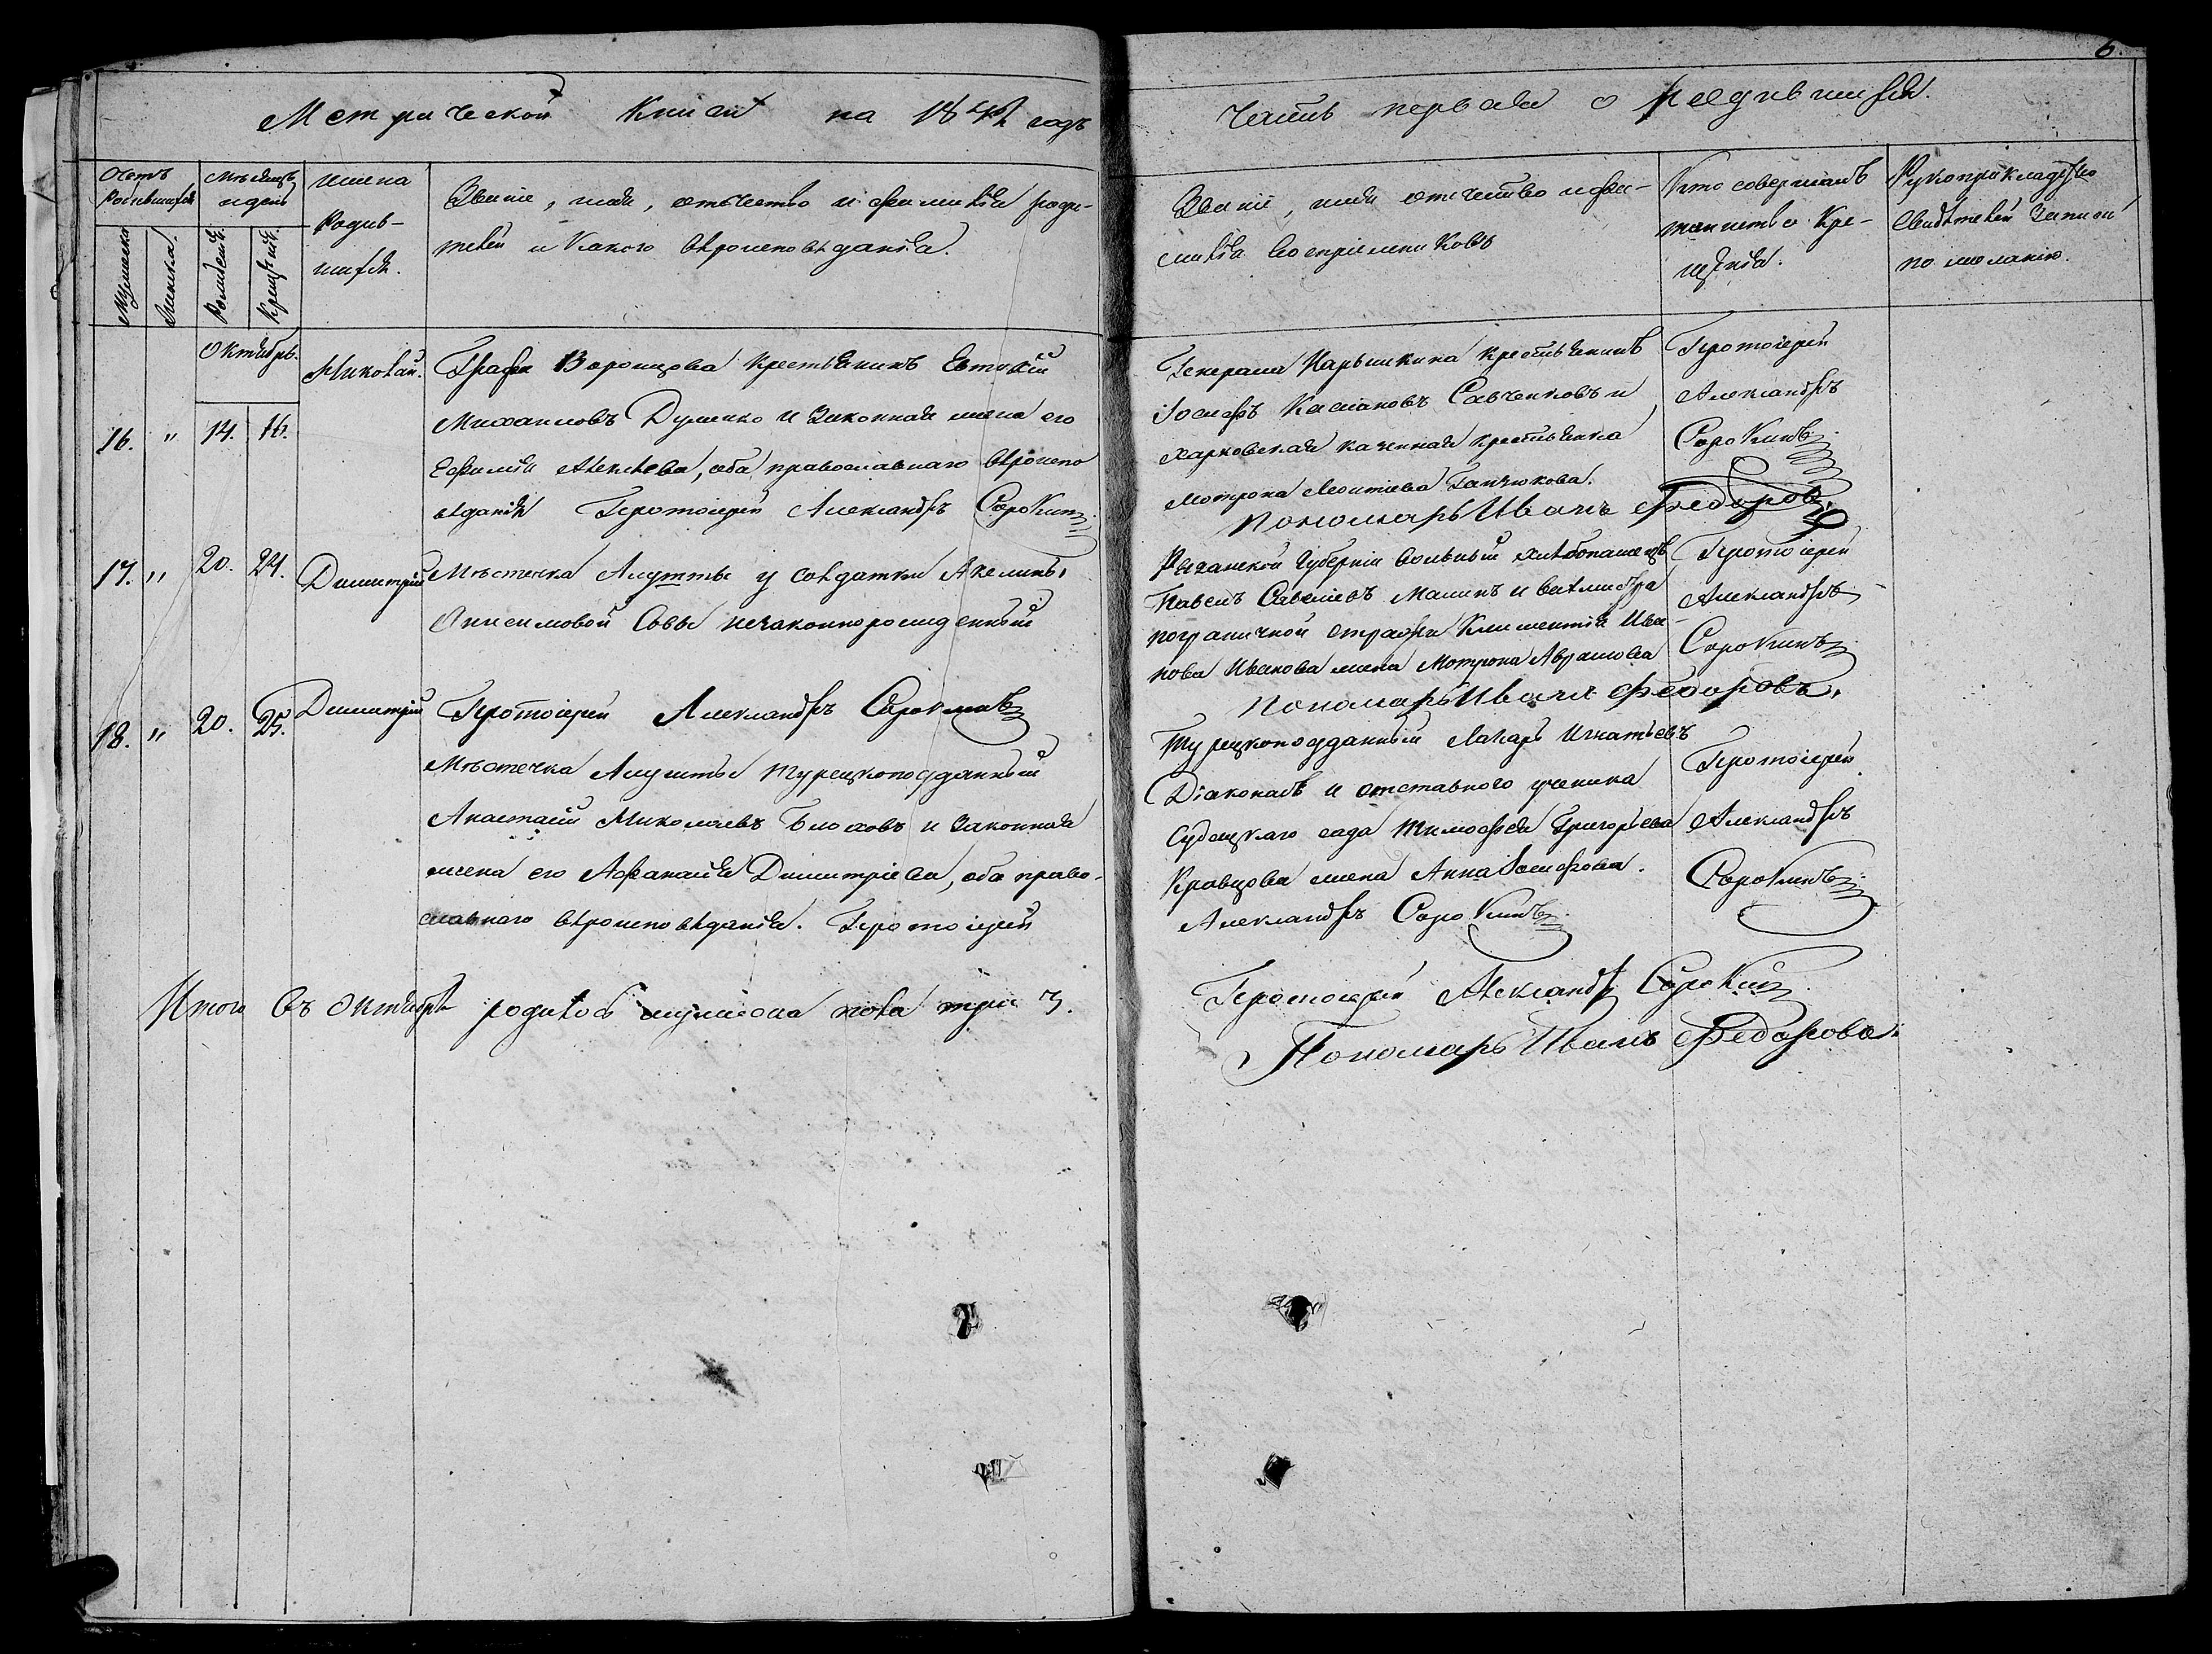 6.
Метрической Книги на 184 годъ
Часть первая о родившихся.
Счетъ родившихся
Мѣсяцъ и день
Мужеска
Женска.
Рожденія.
Крещенія.
Имена
Родив-
шихся.
Званіе, имя, отчество и фамилія роди-
телей и какого вѣроисповѣданія.
Званіе, имя отчество и фа-
милія воспріемниковъ
Кто совершалъ
таинство Кре-
щенія.
Рукоприкладство
свидѣтелей записи
по желанію.
Октябрь.
16. " 14. 16.
Николай.
Графа Воронцова крестьянинъ Евтихій
Михаиловъ Дуленко и законная жена его
Ефимія Алексѣева, оба православнаго вѣроиспо
вѣданія Протоіерей Александръ Сорокинъ
Генерала Нарышкина крестьянинъ
Іосифъ Касіановъ Савченковъ и
харковская казенная крестьянка
Мотрона Леонтіева Ганчукова.
Протоіерей
Александръ
Сорокинъ
Пономарь Иванъ Федоровъ
17. " 20. 24.
Димитрій
Мѣстечка Алушты у солдатки Акелины
Онисимовой Совы незаконнорожденный
Рязанской Губерніи вольный хлѣбопашецъ
Павелъ Савеліевъ Малинъ и вахмистра
пограничной стражи Климентія Ива-
нова Иванова жена Мотрона Абрамова
Протоіерей
Александръ
Сорокинъ
Пономарь Иванъ Федоровъ.
18. " 20. 25.
Димитрій
Протоіерей Александръ Сорокинъ
Мѣстечка Алушты турецкоподданный
Анастасій Николаевъ Блоховъ и законная
жена его Афанасія Димитріева, оба право-
славнаго вѣроисповѣданія. Протоіерей
Турецкоподданный Лазарь Игнатьевъ
Діаконовъ и отставного ученика
Судацкаго сада Тимофея Григорьева
Кравцова жена Анна Іосифова.
Александръ Сорокинъ
Протоіерей
Александръ
Сорокинъ
Итого въ Октябрѣ родилось мужеска пола три 3.
Протоіерей Александръ Сорокинъ
Пономарь Иванъ Федоровъ